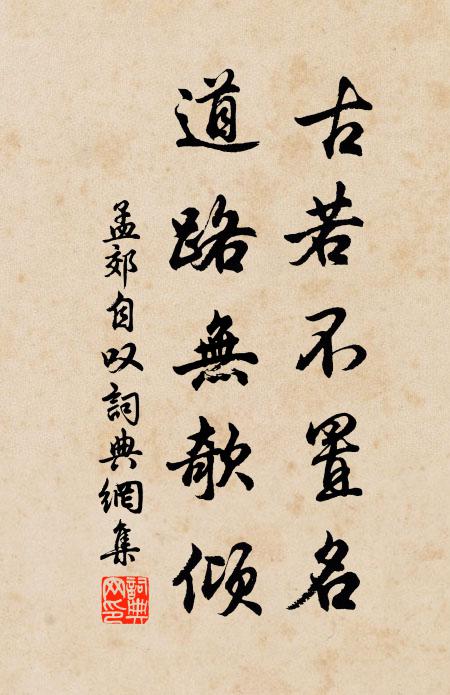 古若不置名
道路無欹傾
孟郊自叹詞典網集
詞典網印